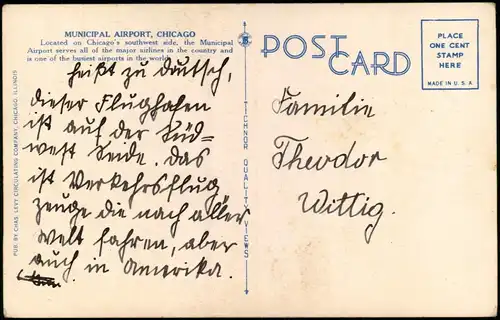 MUNICIPAL AIRPORT, CHICAGO
Located on Chicago's southwest side, the Municipal
Airport serves all of the major airlines in the country and
is one of the busiest airports in the world.
heißt zu Deutsch,
dieser Flughafen
ist auf der Süd-
west Seide. Das
ist Verkehrsflug
zeuge die nach aller
Welt fahren, aber
auch in Amerika.
PUB. BY CHAS. LEVY CIRCULATING COMPANY, CHICAGO, ILLINOIS
TICHNOR QUALITY VIEWS
POST CARD
PLACE
ONE CENT
STAMP
HERE
MADE IN U.S.A.
Familie
Theodor
Wittig.